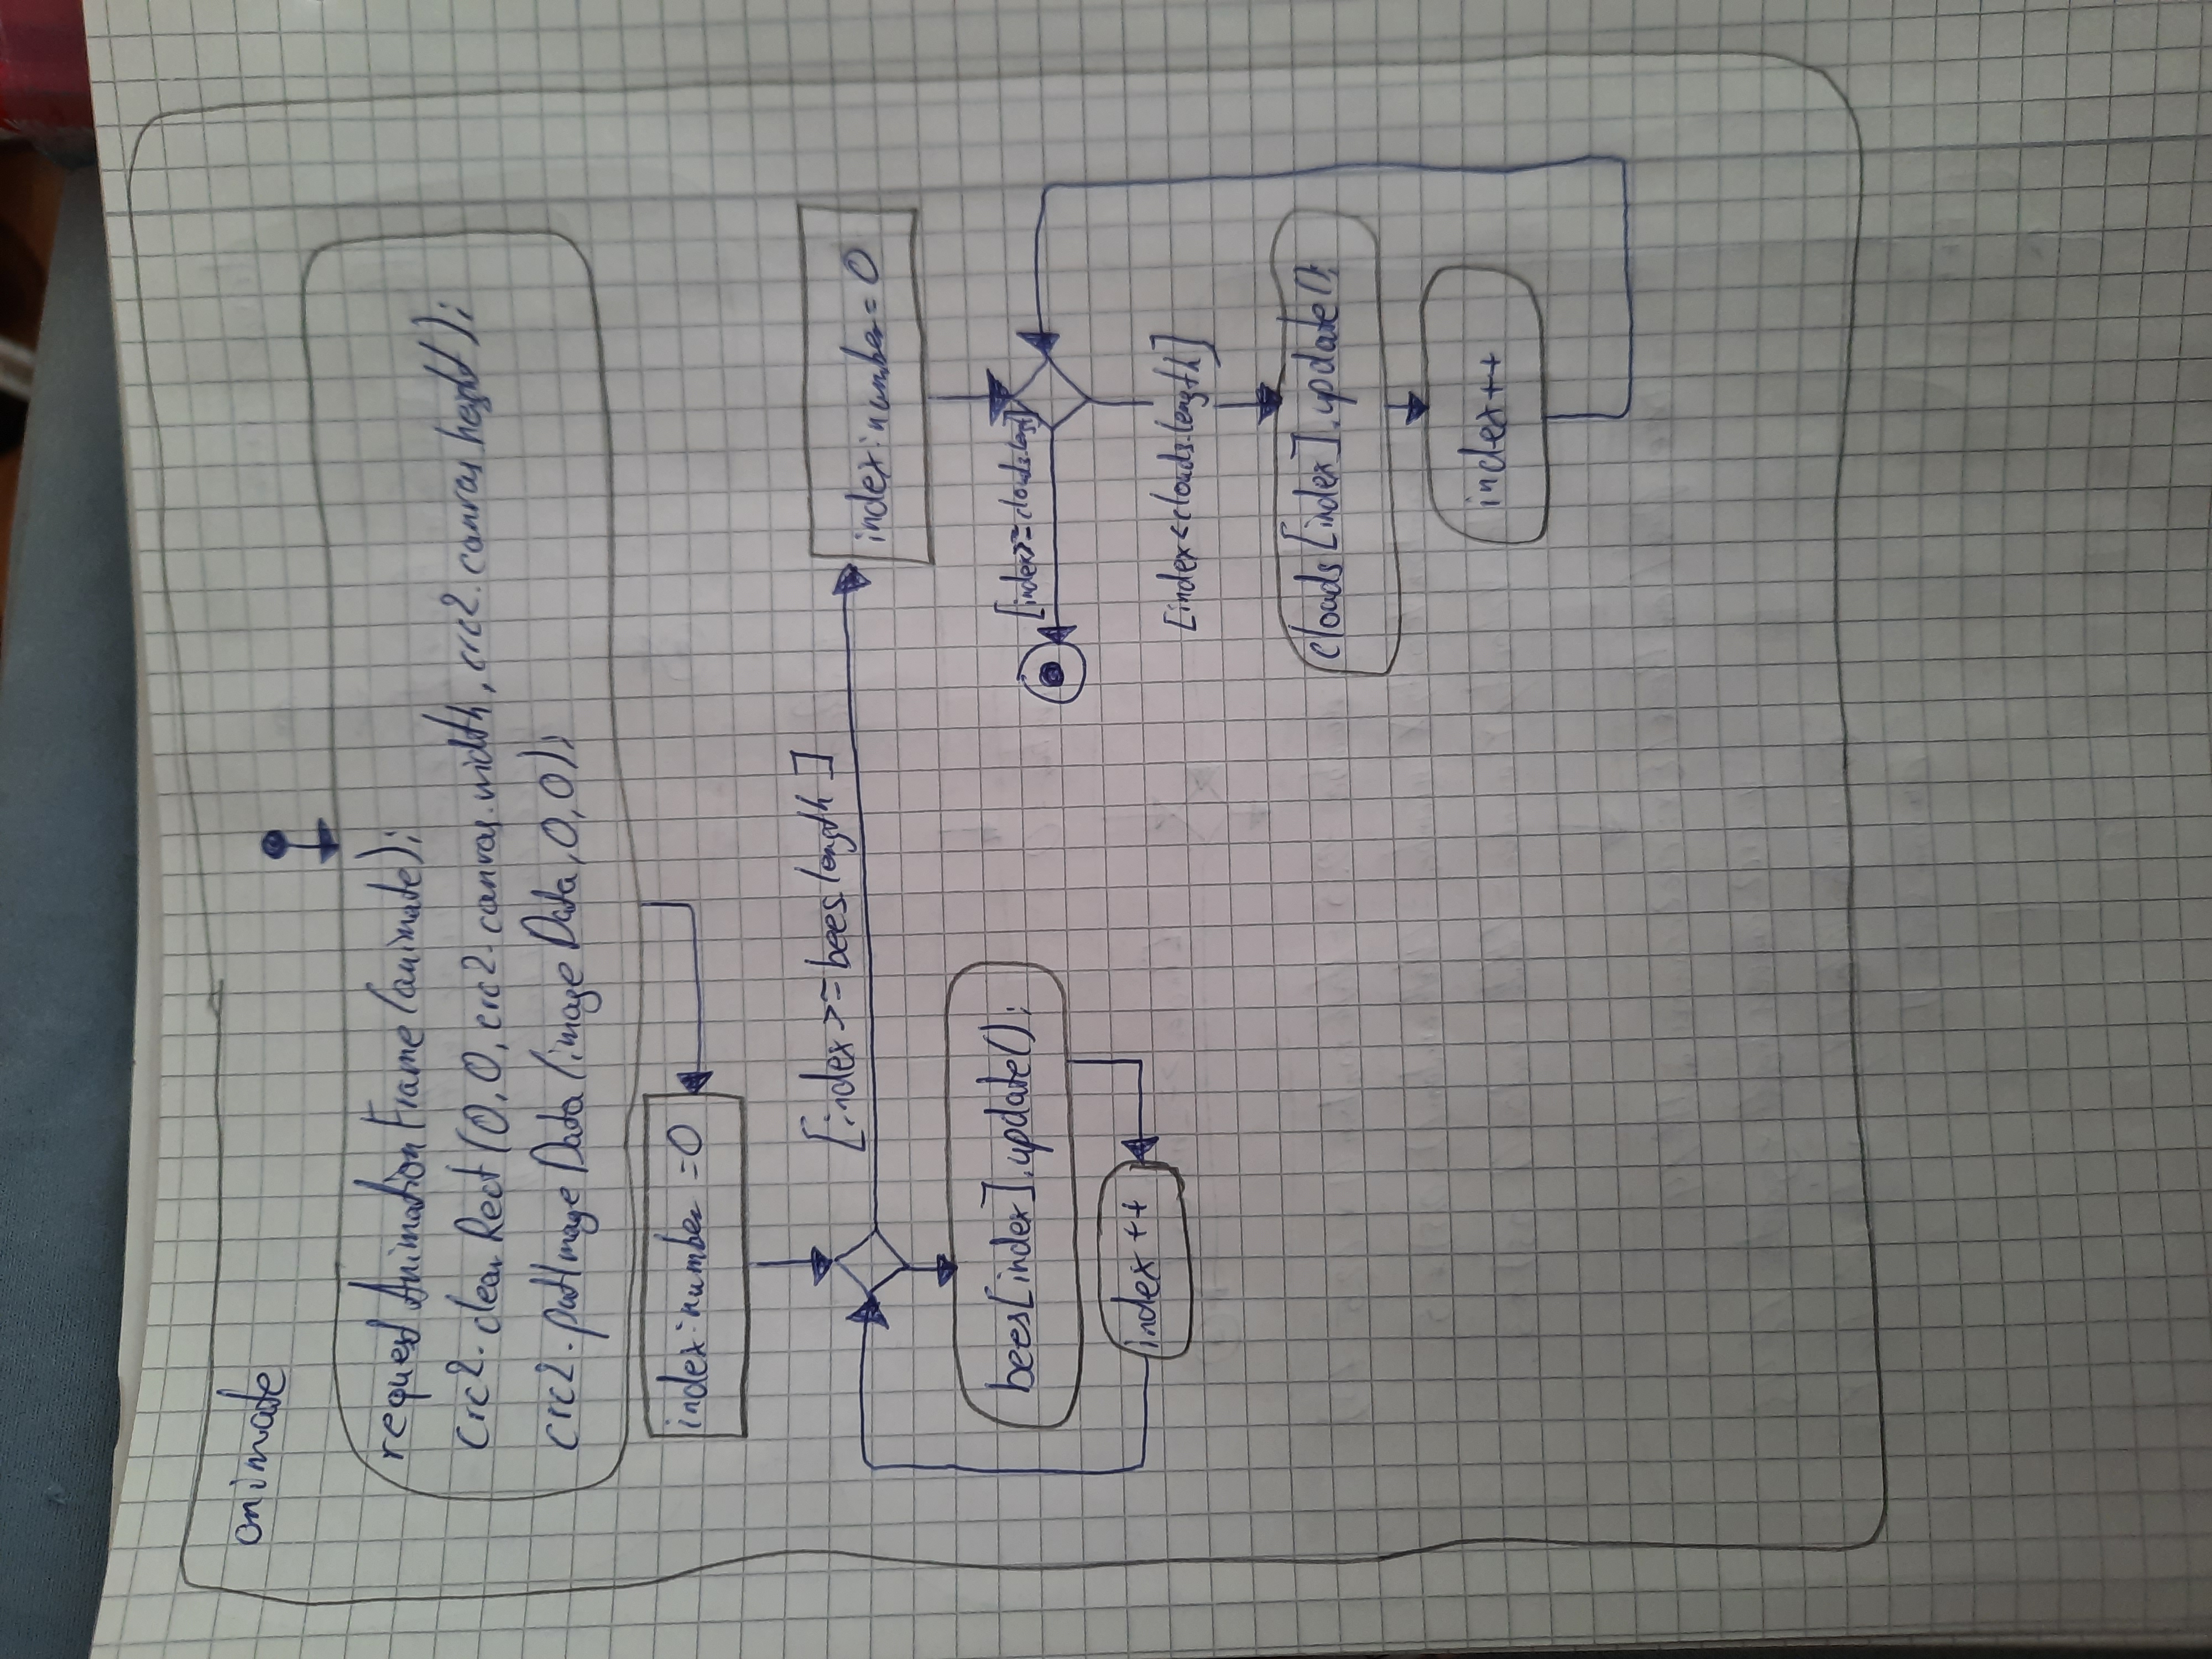 animate
requestAnimationFrame(animate);
crc2.clearRect(0,0,crc2.canvas.width,crc2.canvas.height);
crc2.putImageData(imageData,0,0);
index:number =0
[index>=bees.length]
index:number=0
bees[index].update();
[index>=clouds.length]
index++
[index<clouds.length]
clouds[index].update();
index++